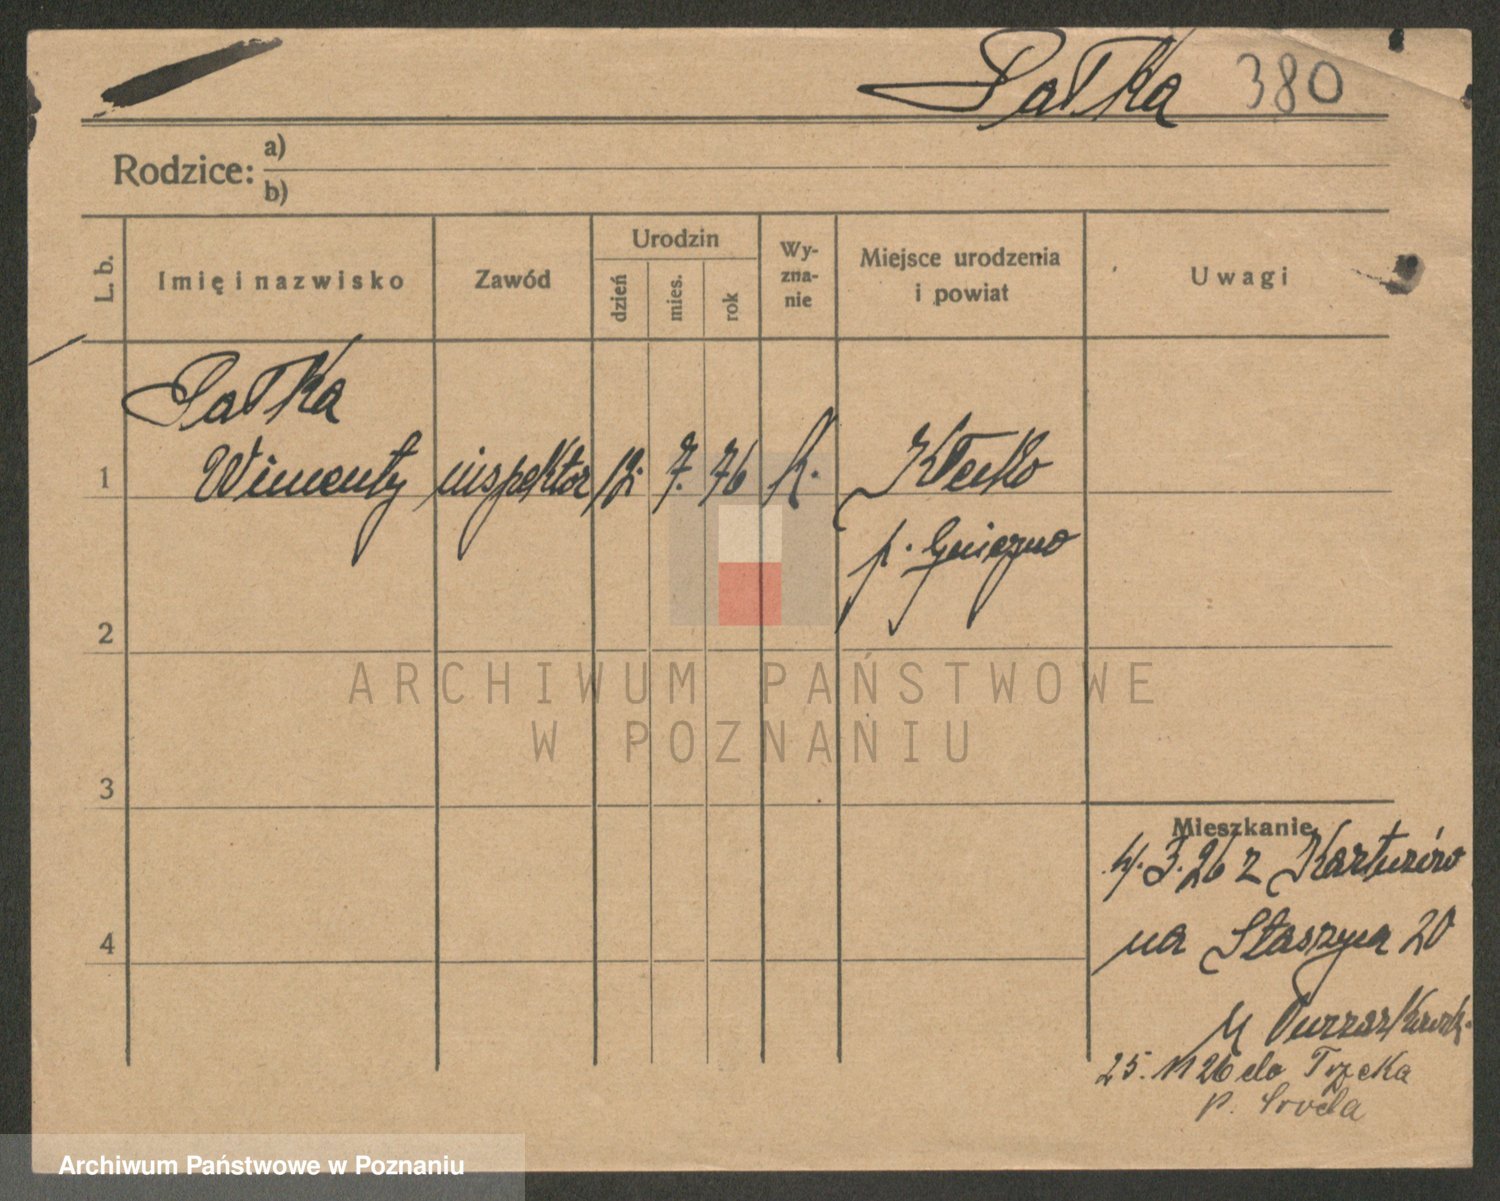 Patka 380
Rodzice: a)
b)
L. b.
Imię i nazwisko
Zawód
Urodzin
dzień
mies.
rok
Wy-
zna-
nie
Miejsce urodzenia
i powiat
Uwagi
Patka
1
inspektor
7. 76
K.
Kłecko
p. Gniezno
2
ARCHIWUM PAŃSTWOWE
W POZNANIU
3
Mieszkanie
4.3.26 z
na Staszyca 20
4
25. 11 26 do Trzcka
p. Środa
Archiwum Państwowe w Poznaniu